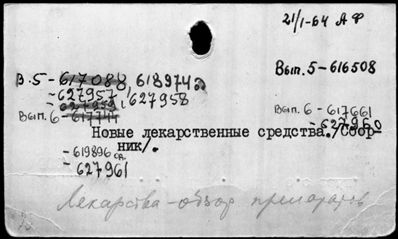 21/1-64 АФ
В.5-617088, 618974
Вып.5-616508
-627957, 627958
-627959
Вып. 6-617661
Вып. 6-617744
-627960
Новые лекарственные средства./Сбор-
ник/.
-619896
-627961
Лекарства-обзор препаратов